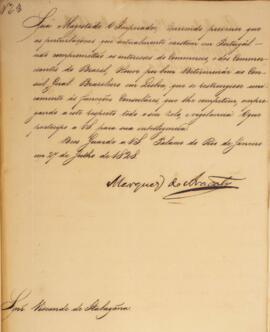 Nº 23
Sua Magestade O Imperador, querendo prevenir que
as perturbações que actualmente existem em Portugal
não compromettão os interesses do Commercio, e dos Commer
ciantes do Brasil, Houve por bem Determinar ao Con
sul Geral Brasileiro em Lisboa, que se restringisse uni
camente ás funcções Consulares que lhe competem, empre
gando a este respeito todo o seu zelo, e vigilancia. O que
participo a VS. para sua intelligencia.
Deos Guarde a VS. Palacio do Rio de Janeiro
em 27 de Julho de 1828.
Marquez de Aracaty
Snr. Visconde de Itabayana.